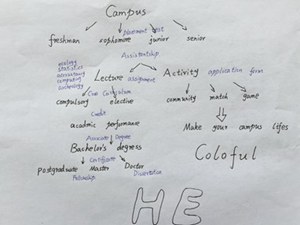 Campus
placement test
freshman sophomore junior senior
Assistantship
ecology
statistics
accountancy
computing
sociology
Lecture assignment Activity application form
Core Curriculum
compulsory elective community match game
Credit
acadmic performance Make your campus lifes
Associate Degree
Bachelor's degrees Coloful
Certificate
Postgraduate Master Doctor
Fellowship Dissertation
HE